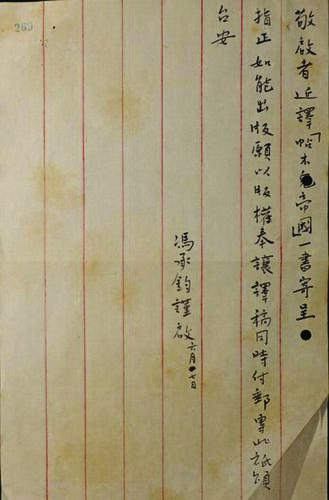 敬啟者近譯「帖木兒帝國」一書寄呈
指正如能出版願以版權奉讓譯稿同時付郵專此祇頌
台安
馮承鈞謹啟六月七日
269